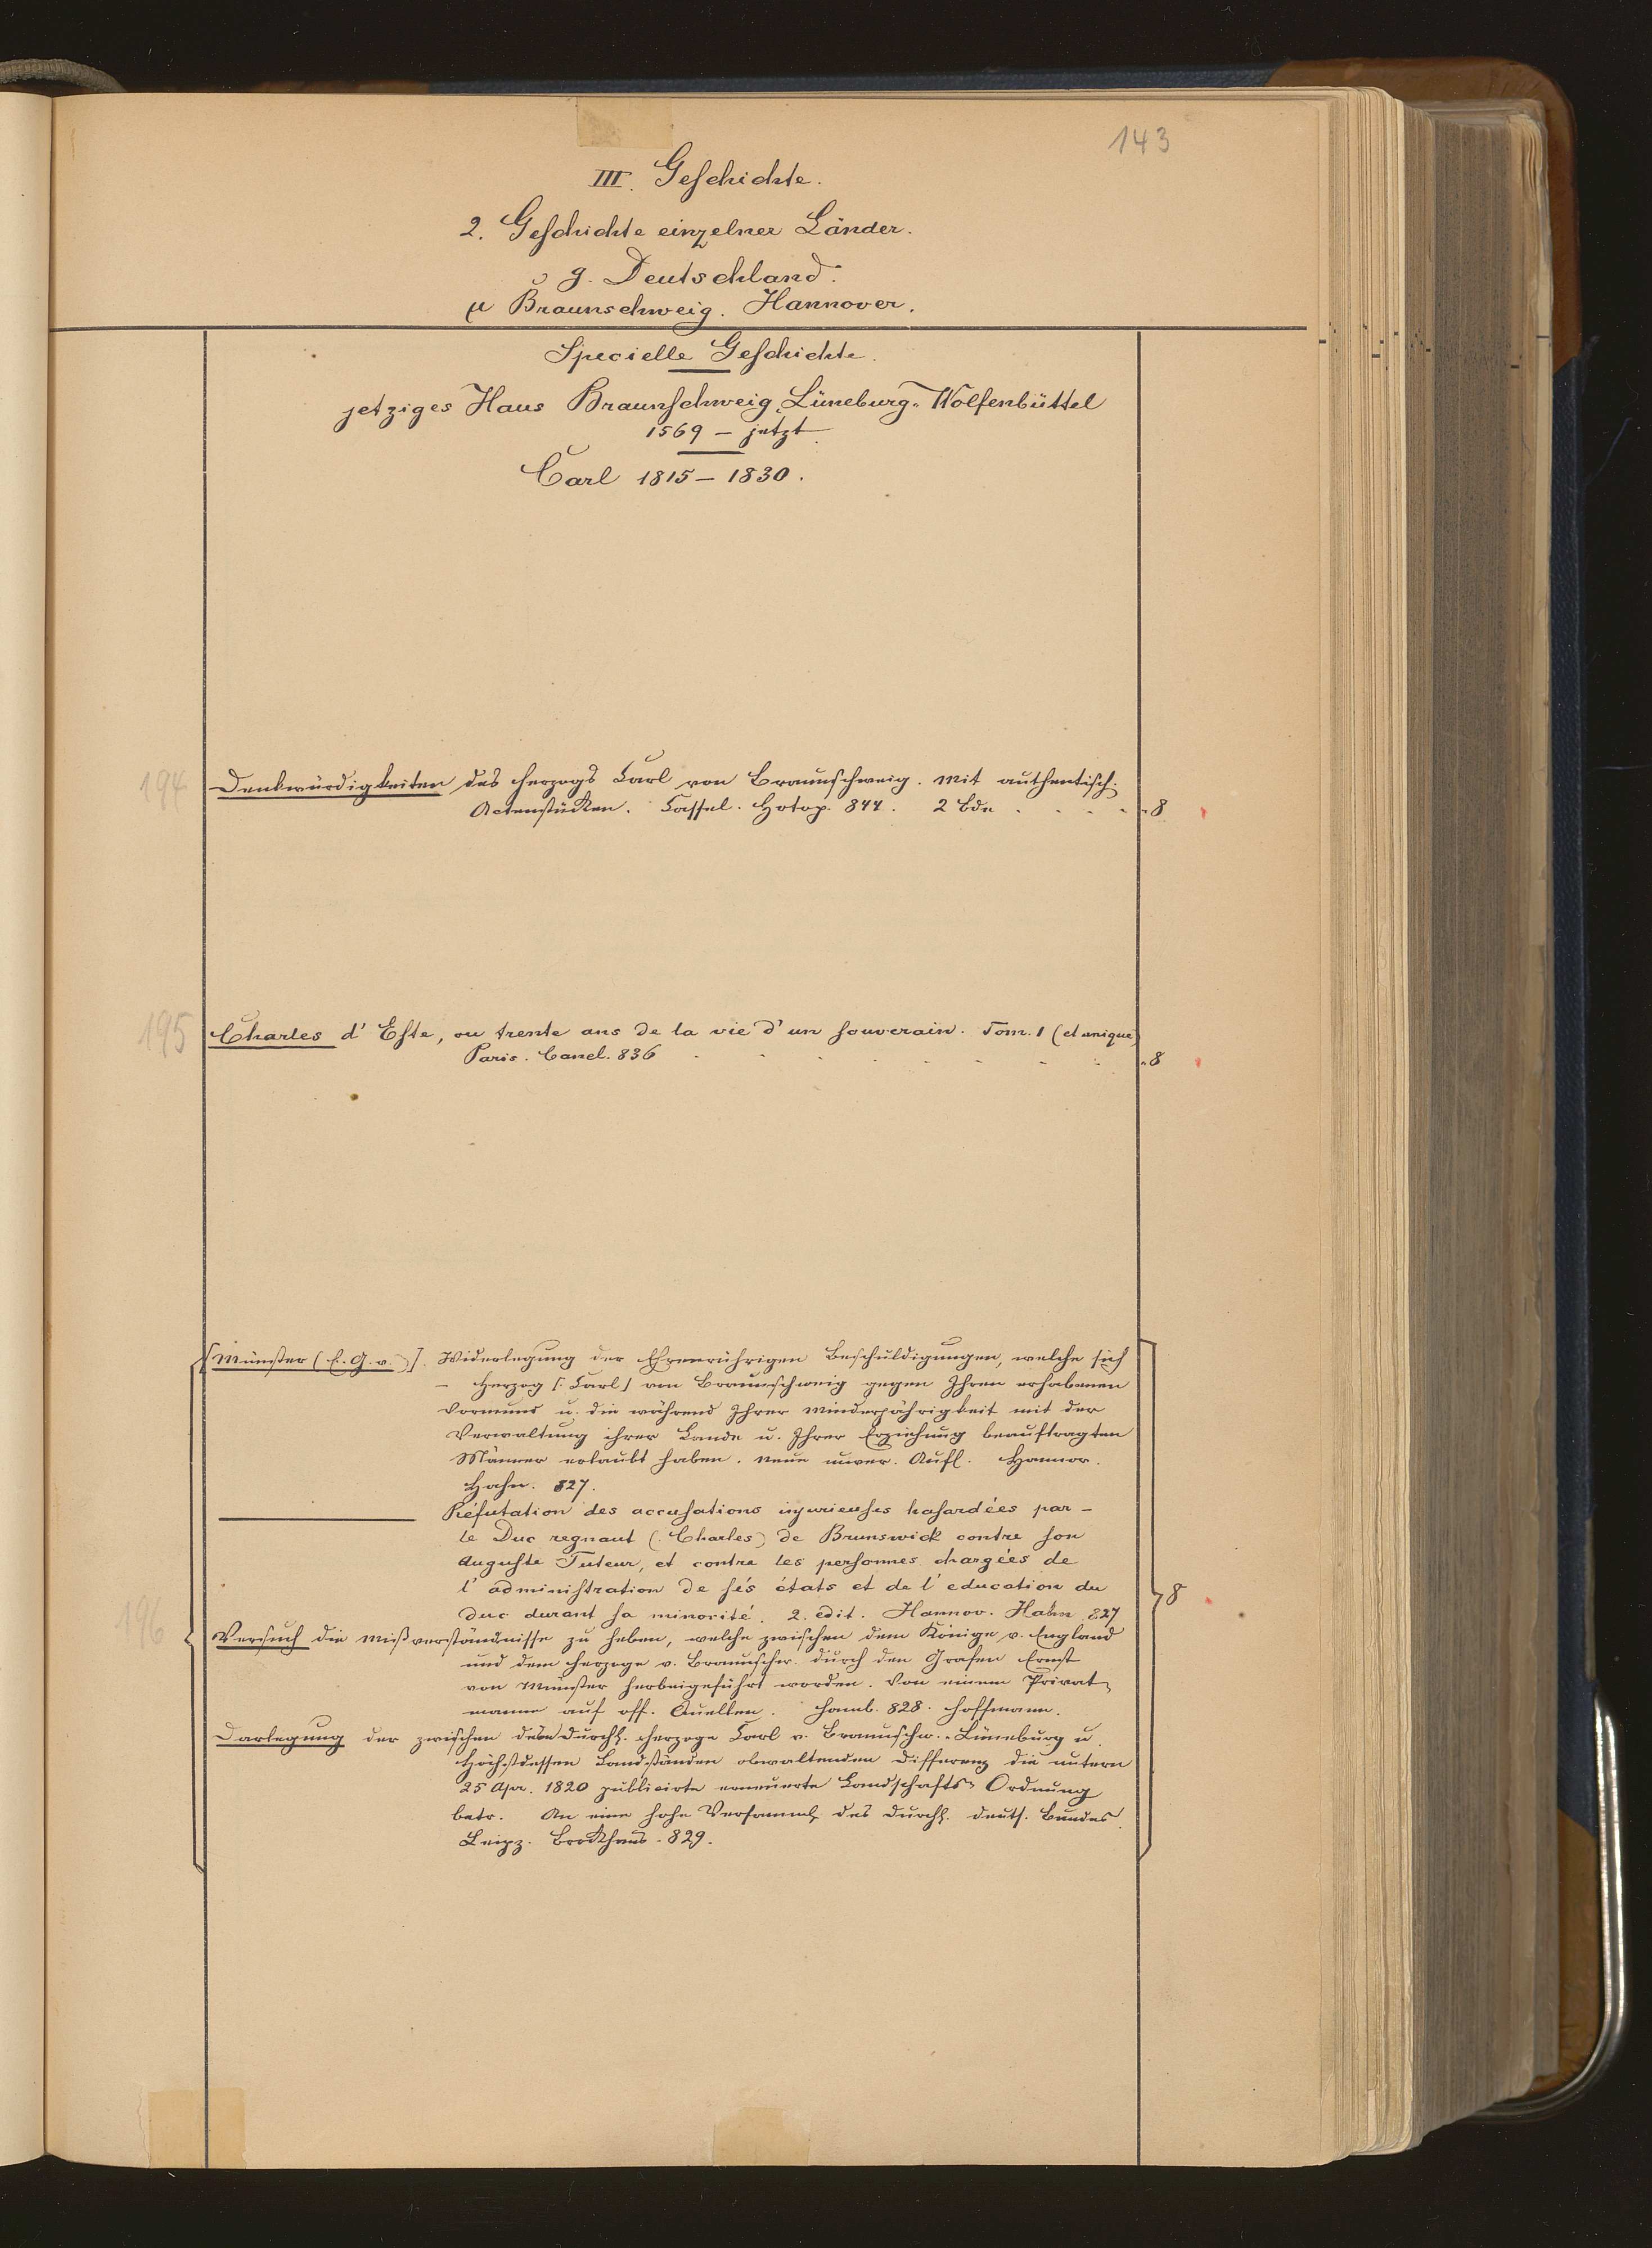 143
III. Geschichte.
2. Geschichte einzelner Länder.
g. Deutschland.
µ Braunschweig. Hannover.
Specielle Geschichte.
jetziges Haus Braunschweig-Lüneburg-Wolfenbüttel
1569 – jetzt.
Carl 1815 – 1830.
194
Denkwürdigkeiten des Herzogs Carl von Braunschweig. Mit authentisch.
Actenstücken. Cassel. Hotop. 844. 2 Bde . . . . 8
195
Charles d'Este, ou trente ans de la vie d'un souverain. Tom. 1 (et unique)
Paris. Canel. 836 . . . . . . . . 8
[Münster (E. G. v.)]. Widerlegung der Ehrenrührigen Beschuldigungen, welche sich
– Herzog (: Carl) von Braunschweig gegen Ihren erhabenen
Vormund u. die während Ihrer Minderjährigkeit mit der
Verwaltung ihrer Lande u. Ihrer Erziehung beauftragten
Männer erlaubt haben. Neue unver. Aufl. Hannov.
Hahn. 827.
——— Réfutation des accusations injurieuses hasardées par –
le Duc regnant (: Charles) de Brunswick contre son
Auguste Tuteur, et contre les personnes chargées de
l'administration de sés états et de l'education du
duc durant sa minorité. 2. edit. Hannov. Hahn. 827
8
196
Versuch die Mißverständnisse zu heben, welche zwischen dem Könige v. England
und dem Herzoge v. Braunschw. durch den Grafen Ernst
von Münster herbeigeführt worden. Von einem Privat-
manne auf off. Quellen. Hamb. 828. Hoffmann.
Darlegung der zwischen dem Durchl. Herzoge Carl v. Braunschw.-Lüneburg u.
Höchstdessen Landständen obwaltenden Differenz die untern
25 Apr. 1820 publicirte erneuerte Landschafts-Ordnung
betr. An eine hohe Versamml. des Durchl. deuts. Bundes.
Leipz. Brockhaus. 829.